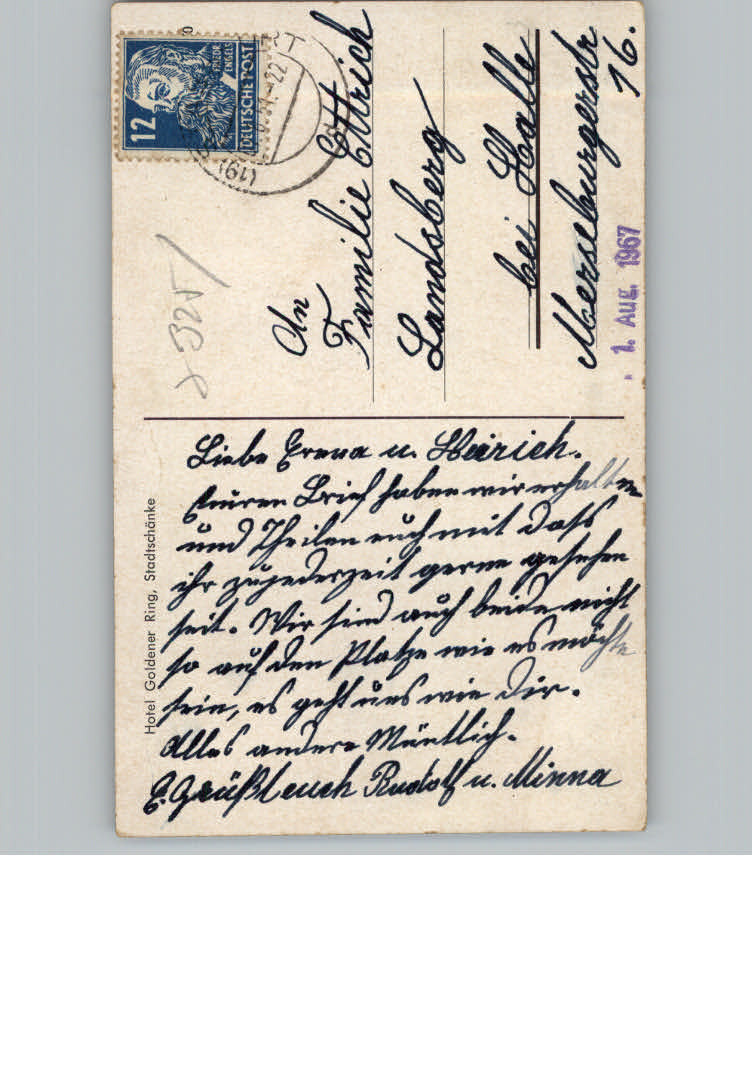 Hotel Goldener Ring, Stadtschänke
Liebe Erena u. Heirich.
Euren Brief haben wir erhalten
und Theilen euch mit dass
ihr zujederzeit gerne gesehen
seit. Wir sind auch beide nicht
so auf den Platze wie es möchte
sein, es geht uns wie Dir.
Alles andere Müntlich.
E. Grüßt euch Rudolf u. Minna
12
FRIEDR.
ENGELS
DEUTSCHE POST
(19)
An
Familie Ettrich
Landsberg
bei Halle
Merseburgerstr
16.
1. Aug. 1967